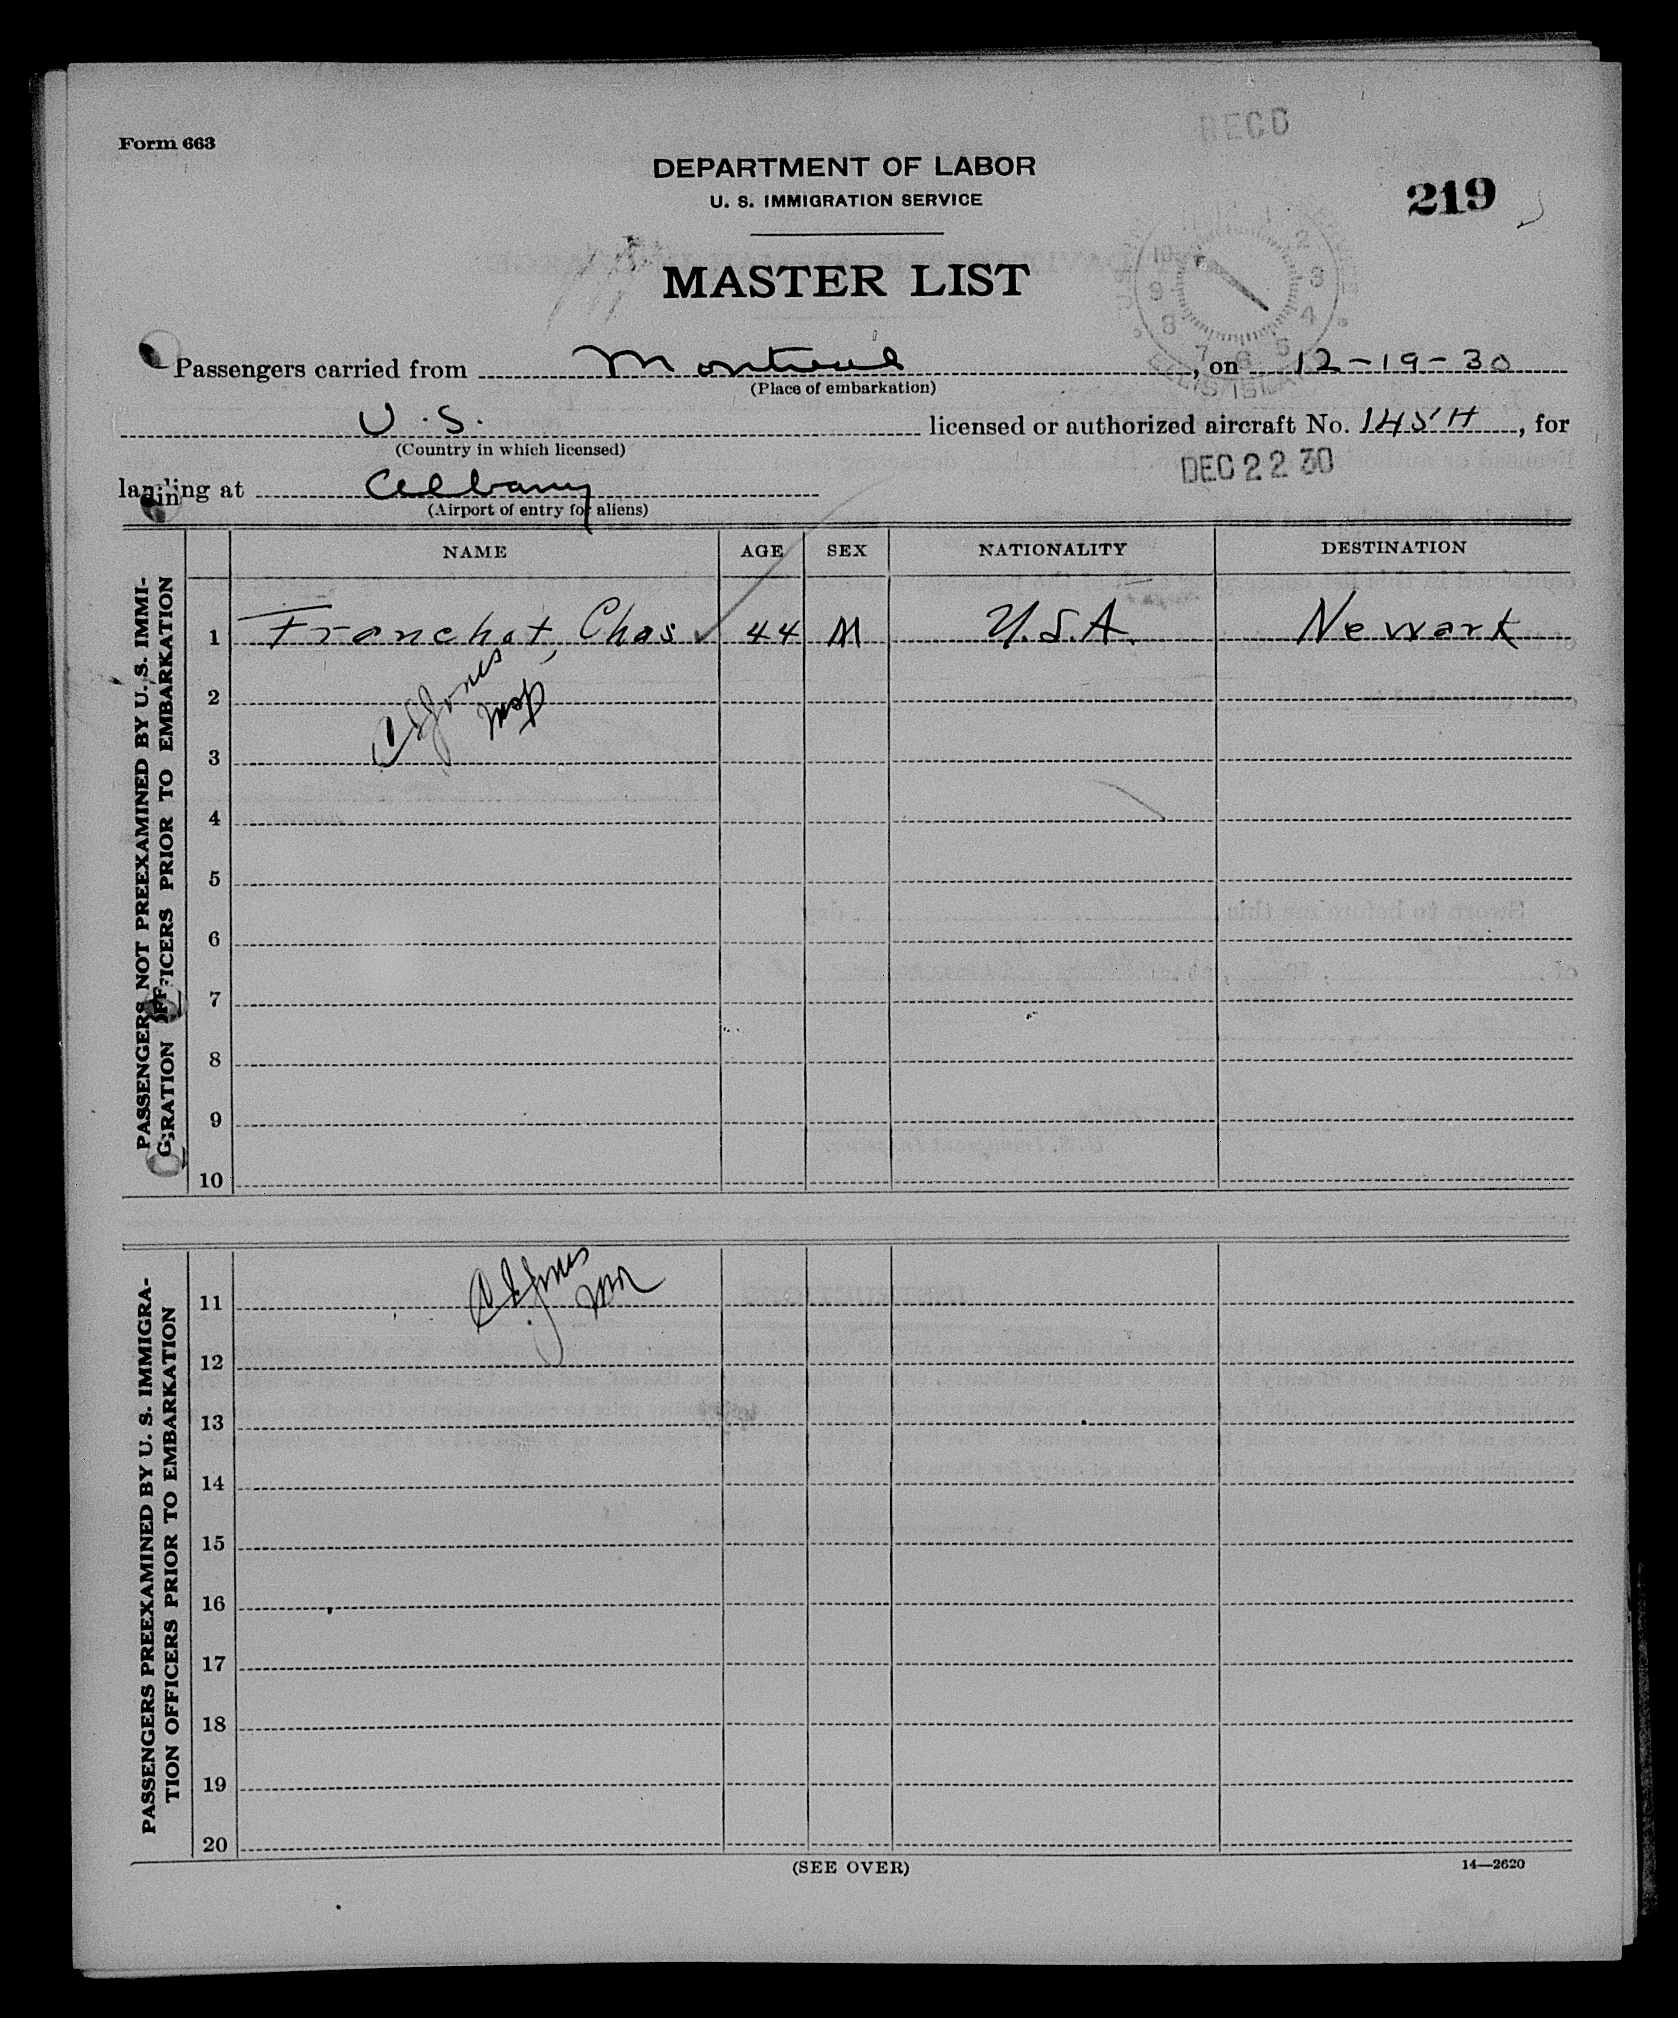 Form 663
RECD
DEPARTMENT OF LABOR
U. S. IMMIGRATION SERVICE
219
MASTER LIST
Passengers carried from Montreal, on 12-19-30
(Place of embarkation)
U.S. licensed or authorized aircraft No. 145H, for
(Country in which licensed)
DEC 22 30
landing at Albany
(Airport of entry for aliens)
NAME AGE SEX NATIONALITY DESTINATION
PASSENGERS NOT PREEXAMINED BY U. S. IMMI-
GRATION OFFICERS PRIOR TO EMBARKATION
1 Franchot, Chas 44 M U.S.A. Newark
2
Jones
Insp
3
4
5
6
7
8
9
10
PASSENGERS PREEXAMINED BY U. S. IMMIGRA-
TION OFFICERS PRIOR TO EMBARKATION
Jones
11
12
13
14
15
16
17
18
19
20
(SEE OVER)
14—2620